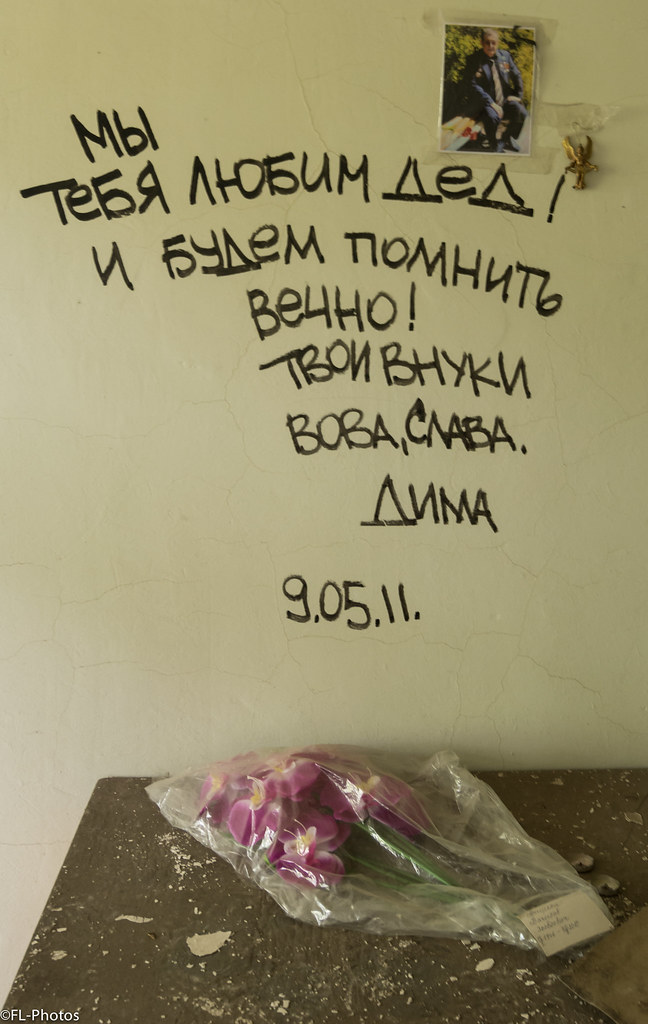 МЫ
ТЕБЯ ЛЮБИМ ДЕД!
И БУДЕМ ПОМНИТЬ
ВЕЧНО!
ТВОИ ВНУКИ
ВОВА, СЛАВА.
ДИМА
9.05.11.
©FL-Photos